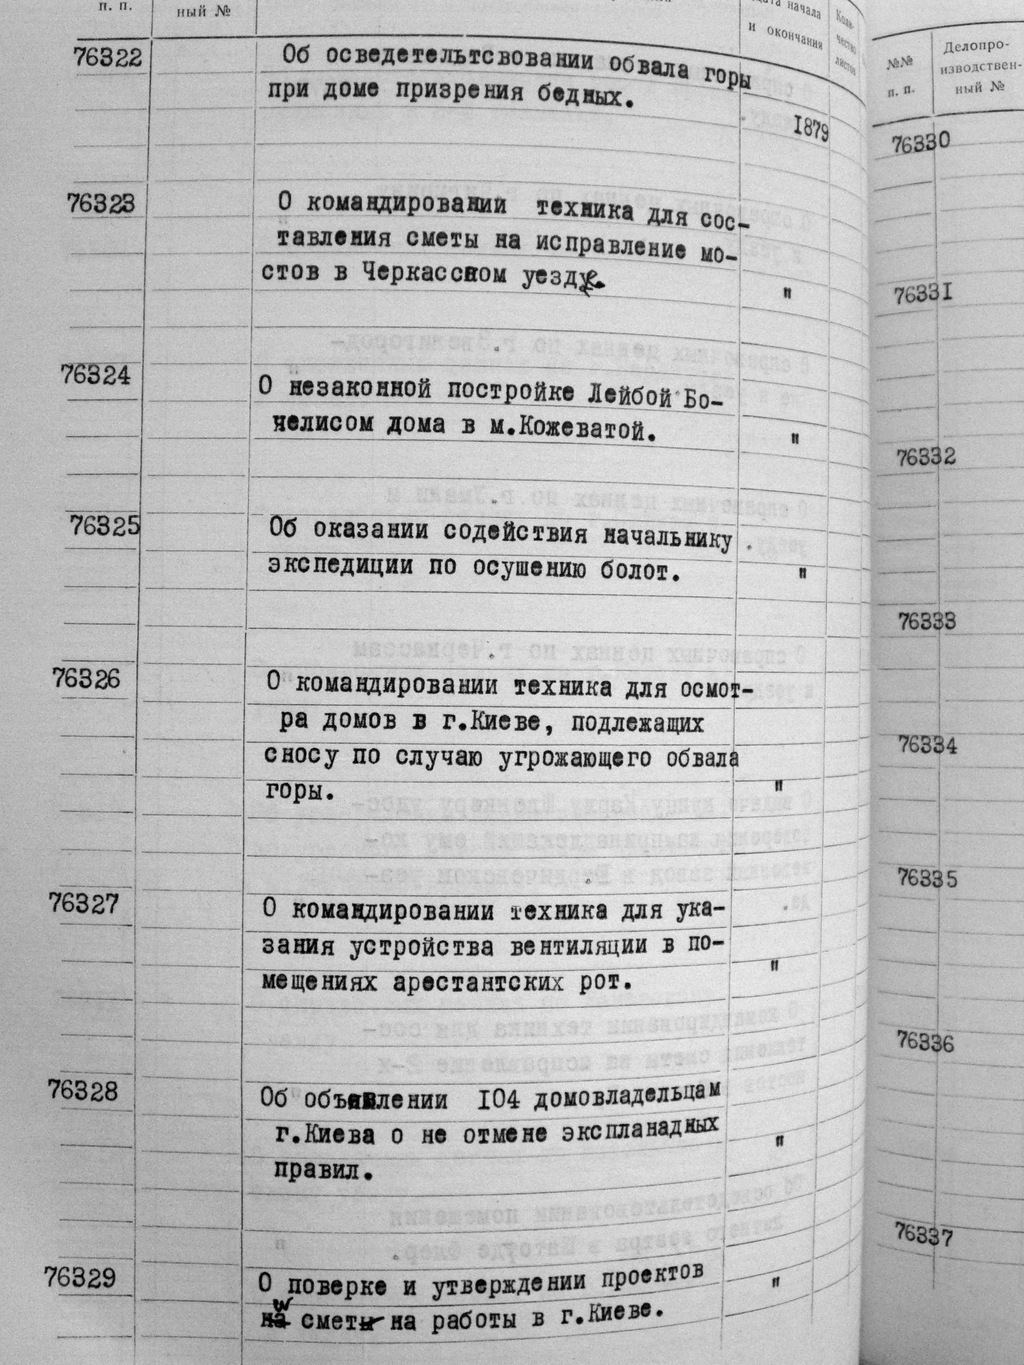 п. п.
ный №
дата начала
и окончания
Коли-
чество
листов
76322
Об осведетельтсвовании обвала горы
при доме призрения бедных.
1879
76323
О командировании техника для сос-
тавления сметы на исправление мо-
стов в Черкасском уезде.
"
76324
О незаконной постройке Лейбой Бо-
нелисом дома в м.Кожеватой.
"
76325
Об оказании содействия начальнику
экспедиции по осушению болот.
"
76326
О командировании техника для осмот-
ра домов в г.Киеве, подлежащих
сносу по случаю угрожающего обвала
горы.
"
76327
О командировании техника для ука-
зания устройства вентиляции в по-
мещениях арестантских рот.
"
76328
Об объявлении 104 домовладельцам
г.Киева о не отмене эспланадных
правил.
"
76329
О поверке и утверждении проектов
и смет на работы в г.Киеве.
"
№№
п. п.
Делопро-
изводствен-
ный №
76330
76331
76332
76333
76334
76335
76336
76337